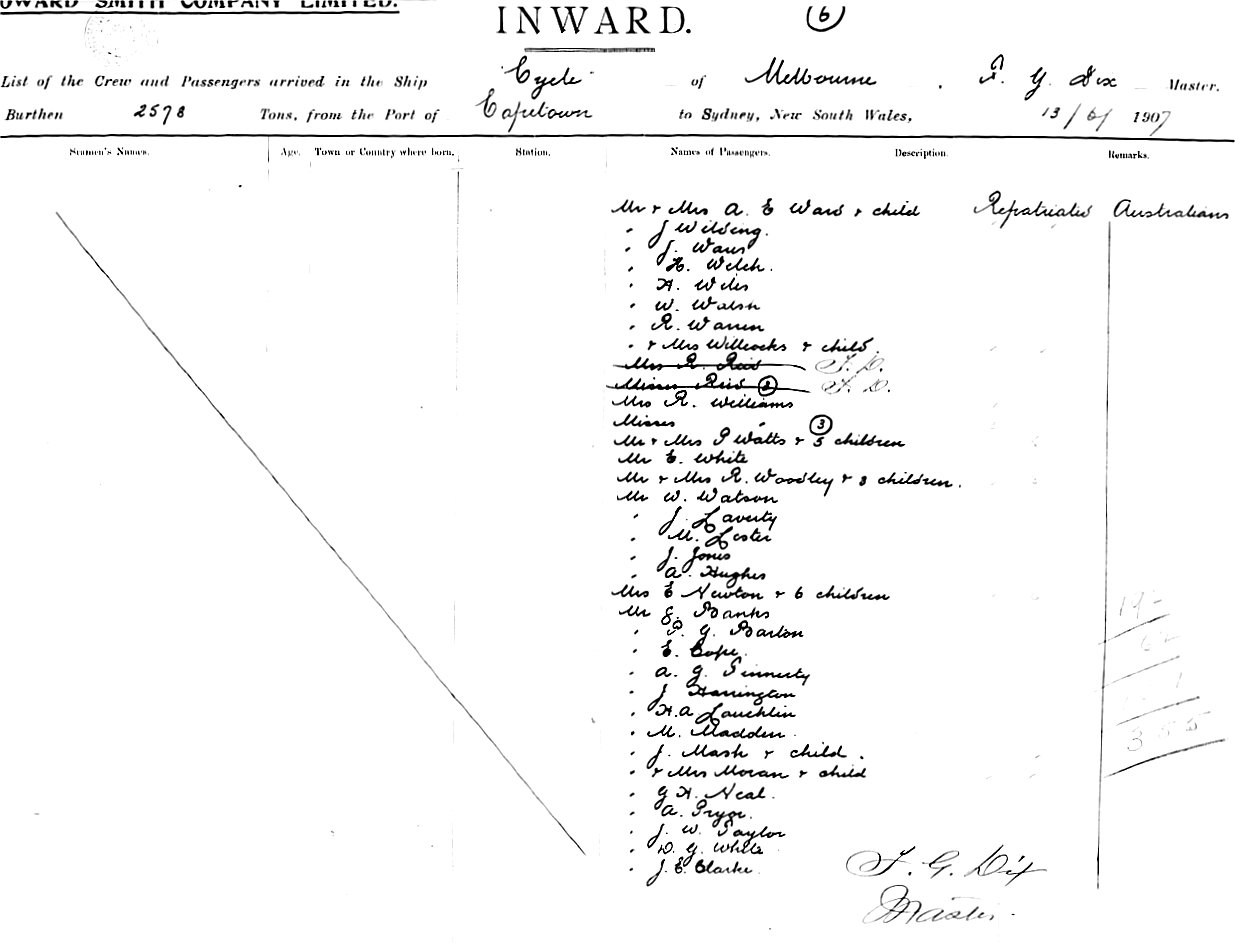 HOWARD SMITH COMPANY LIMITED.
INWARD.
6
List of the Crew and Passengers arrived in the Ship "Cycle" of Melbourne, F. G. Dix Master.
Burthen 2578 Tons, from the Port of Capetown to Sydney, New South Wales, 13/6/ 1907
Seamen's Names. Age. Town or Country where born. Station. Names of Passengers. Description. Remarks.
Mr & Mrs A. E Ward & child Repatriated Australians
" J Wilding.
" J.
" H. Welch.
" H. Wiles
" W. Walsh
" R. Warren
" & Mrs Willcocks & child.
Mrs R. Reid F. D.
Misses Reid 2 F. D.
Mrs R. Williams
Misses " 3
Mr & Mrs P Watts & 5 children
Mr E. White
Mr & Mrs R. Woodley & 3 children.
Mr W. Watson
" J. Laverty
" M. Lester
" J. Jones
" A. Hughes
Mrs E Newton & 6 children
Mr G. Banks
" P. G. Barton
" E. Cope.
" A. G. Finnerty
" J Harrington
" H. A Lauchlin
" M. Madden.
" J. Mash & child.
" & Mrs Moran & child
" G H. Neal.
" A. Pryor.
" J. W. Taylor
" D. G. White
" J. E. Clarke.
F. G. Dix
Master.